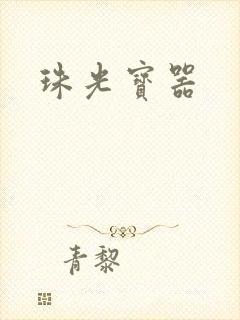 珠光寶器
青黎